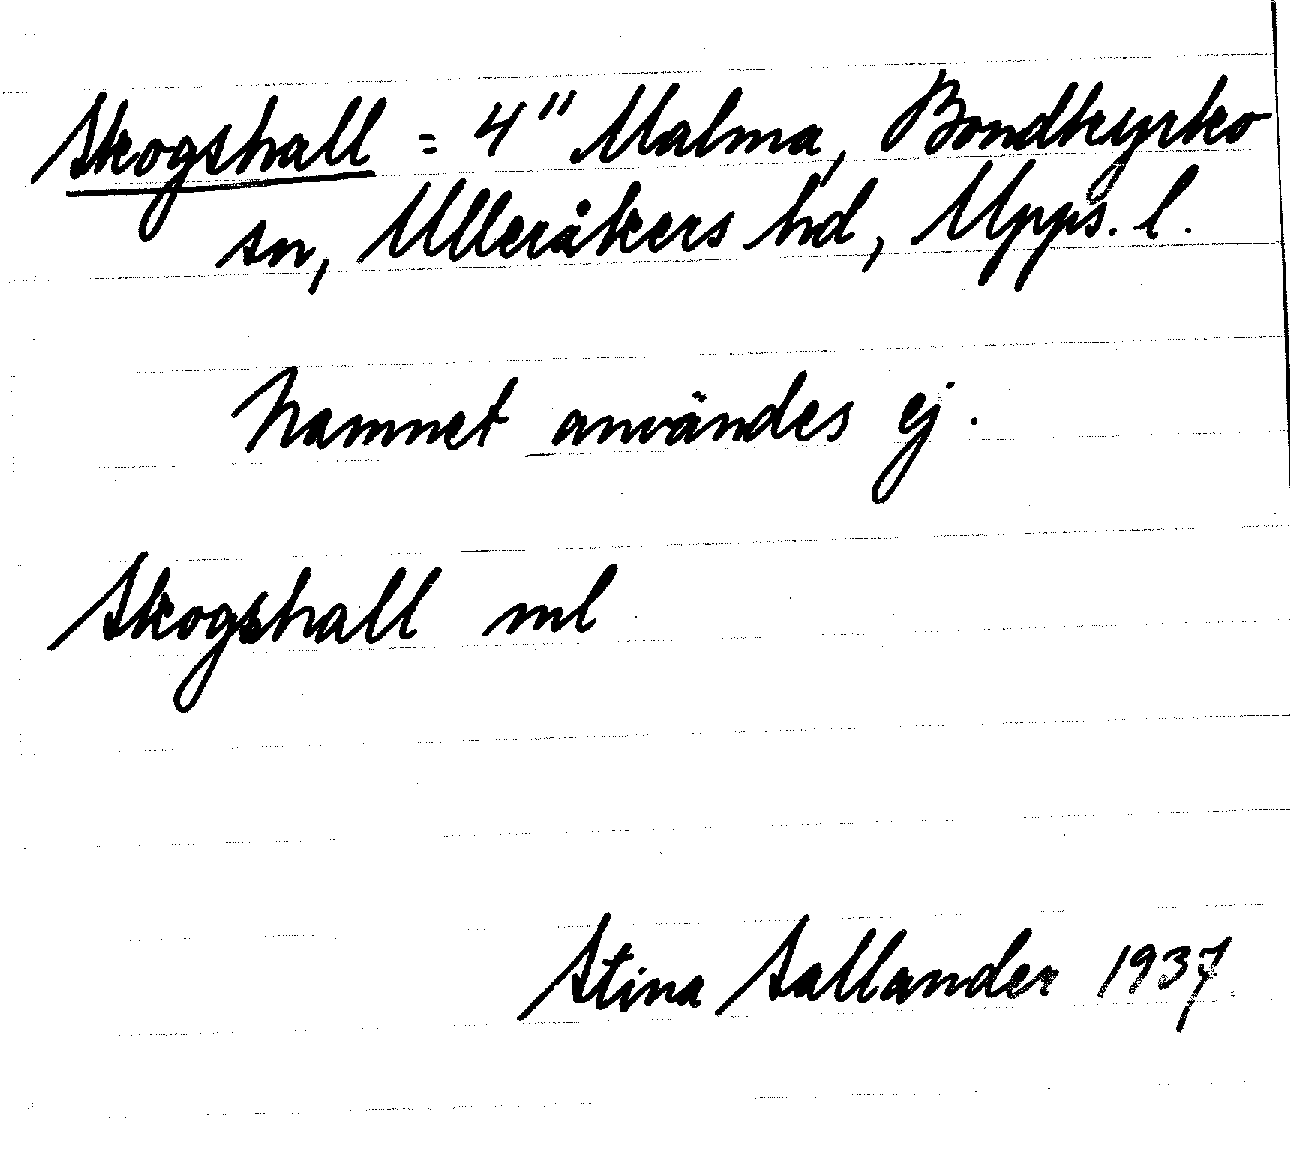 Skogshall = 4" Malma, Bondkyrko
sn, Ulleråkers hd, Upps. l.
Namnet användes ej.
Skogshall ml
Stina Sallander 1937.